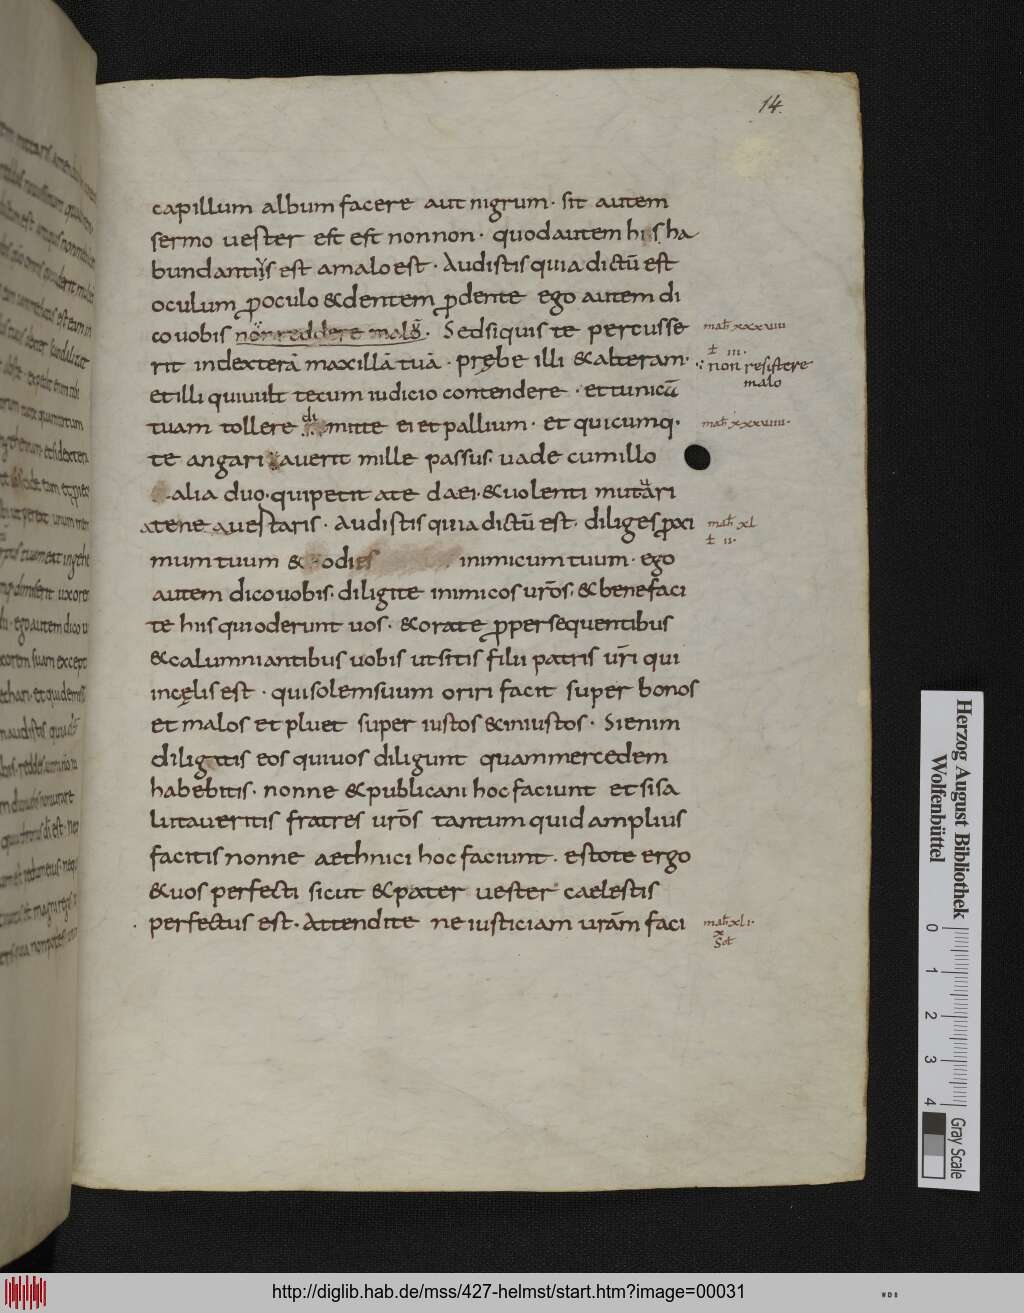 14.
capillum album facere aut nigrum· sit autem
sermo uester est est non non· quod autem his ha
bundantius est amalo est· Audistis quia dictū est
oculum ꝓoculo & dentem ꝓdente ego autem di
co uobis non reddere malū· Sed siquis te percusse
rit indexterā maxillā tuā· prębe illi & alteram·
et illi qui uult tecum iudicio contendere· et tunicā
tuam tollere dimitte ei et pallium· et quicumq·
te angariauerit mille passus· uade cum illo
alia duo· qui petit ate da ei· & uolenti mutuari
atene auestaris· Audistis quia dictū est· diliges ꝓxi
mum tuum & odies inimicum tuum· ego
autem dico uobis· diligite inimicos ur̄os· & benefaci
te hiis qui oderunt uos· & orate ꝓ persequentibus
& calumniantibus uobis ut sitis filii patris ur̄i qui
incęlis est· qui solem suum oriri facit super bonos
et malos et pluet super iustos & iniustos· Si enim
diligatis eos qui uos diligunt quam mercedem
habebitis· nonne & publicani hoc faciunt et si sa
lutaueritis fratres ur̄os tantum quid amplius
facitis nonne aethnici hoc faciunt· estote ergo
& uos perfecti sicut & pater uester caelestis
perfectus est· Attendite ne iusticiam urām faci
mat̄ xxxuiii
non resistere
malo
mat̄ xxxuiiii·
mat̄ xl
mat̄ xli·
Herzog August Bibliothek
Wolfenbüttel
0 1 2 3 4
Gray Scale
http://diglib.hab.de/mss/427-helmst/start.htm?image=00031